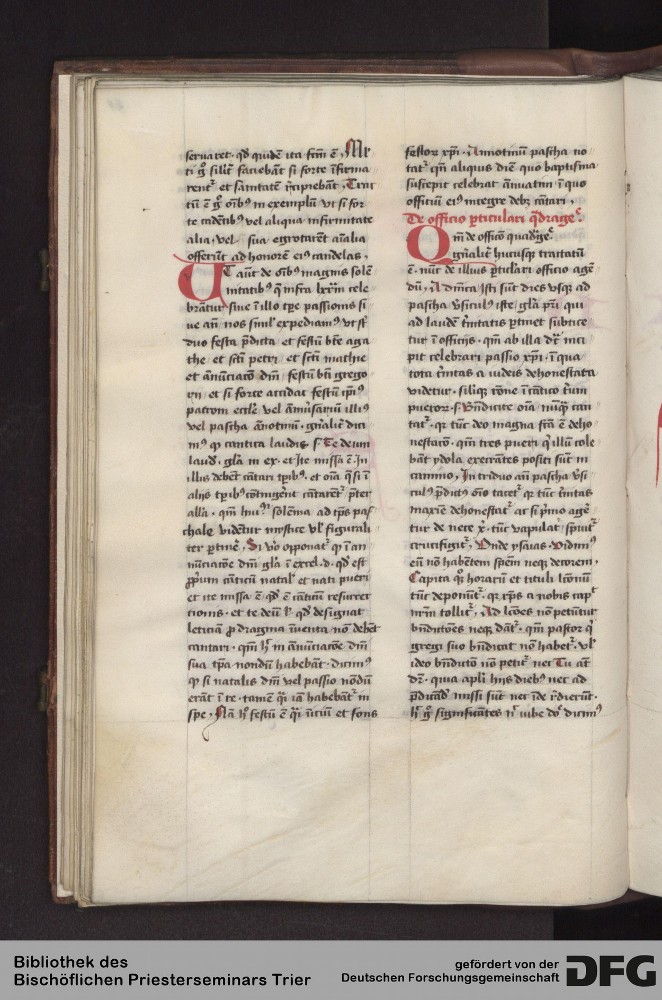 seruaret · qd quidē ita fcm̄ ē · Mr̄
ti g̊ silīr faciebāt si forte īfirma
rent᷑ et sāitatē r̄cipiebāt · Trac
tū ē g̊ om̄ibꝰ in exemplū vt si for
te cadētibꝰ vel aliqua infirmitate
alia · vel sua egrotarēt aīalia
offerūt ad honorē eiꝰ candelas ·
Ut aūt de oībꝰ magnis solē
initatibꝰ q̄ infra lxx̄m cele
brātur siue ī illo tp̄e passionis si
ue aīi nos simul expediamꝰ vt st̄
duo festa p̄dicta et festū bt̄e aga
the · et scti petri · et scti mathie
et ānūciacō dni · festū bti grego
rij · et si forte accidat festū ip̄iꝰ
patroni eccle vel āniūsariū illiꝰ
vel pascha ānotinū · gn̄alit᷑ dici
mꝰ ꝙ cantica laudis · s̄ · Te deum
laud · gl̄a in ex · et Ite missa ē · In
illis debēt cātari tp̄ibꝰ · et oīa q̄ si ī
alijs tp̄ibꝰ cōtīgēnt cātarēt᷑ p̄ter
alla · qm̄ hui᷑ solēnia ad tp̄s pas
chale videtur mistice vl̓ figurali
ter ptinē · Si v̊o opponat᷑ ꝙ ī an
nūciacōe dni gl̄a ī excel · d · qd est
ꝓp̄um cāticū natal᷑ et nati pueri
et ite missa ē qd ē cāticū resurrec
tionis · et te deū l᷑ qd designat
leticiā ꝓ dragma īuenta nō debēt
cantari · qm̄ h̄ in ānūciacōe dni
sua tp̄a nondū habebāt · dicimꝰ
ꝙ si natalis dni vel passio nōdū
erāt ī re · tamē q̄i iā habebāt᷑ in
spe · Nā h̊ festū ē q̄i inciū et fons
festor xp̄i · Annotinū pascha no
tat᷑ qn̄ aliquis diē quo baptisma
suscepit celebrat annuatim ī quo
officiū eiꝰ integre debꝫ cātari ·
De officio pticulari q̄drage᷑
Qm̄ de officō quadḡe᷑
gn̄alit᷑ hucusꝙ tractatū
ē · nūc de illius pticlari officio agē
dū · A dn̄ica ista sūt dies vsꝙ ad
pascha v̄siculꝰ iste · gl̄a p̄ri qui
ad laudē t̄nitatis ptinet subtice
tur ī officijs · qm̄ ab illa dr̄ inci
pit celebrari passio xp̄i · ī qua
tota t̄nitas a iudeis dehonestata
videtur · silīqꝫ rōne ī cātico t̄um
pueror · s̄ · Bn̄dicite oīa nūq̄ can
tat᷑ · ꝙ tūc deo magna fcā ē deho
nestacō · qm̄ tres pueri q̄ illū cole
bāt ydola execrātes positi sūt in
camino · In triduo aūt pascha v̄si
culꝰ p̄dictꝰ oīo tacet᷑ ꝙ tūc t̄nitas
maxīe dehonestat᷑ ac si p̄mo age
tur de nece x · tūc vapulat᷑ spuit᷑
crucifigit᷑ · Unde ysaias · Vidimꝰ
eū nō habētem spēm neqꝫ decorem ·
Capita q̊ꝫ horarū et tituli lcōnū
tūc deponūt᷑ · qꝫ xp̄s a nobis cap᷑
nr̄m tollit᷑ · Ad lcōes nō petūtur
bn̄dictōes neqꝫ dāt᷑ · qm̄ pastor q̄
gregi suo bn̄dicat nō habet᷑ · vl̓
ideo bn̄dictō nō petit᷑ nec Tu at̄
dr̄ · quia apl̄i hijs diebꝰ nec ad
p̄dicād missi sūt nec īde r̄dierūt ·
h̄ g̊ significātes n᷑ iube do᷑ dicimꝰ
Bibliothek des
Bischöflichen Priesterseminars Trier
gefördert von der
Deutschen Forschungsgemeinschaft
DFG